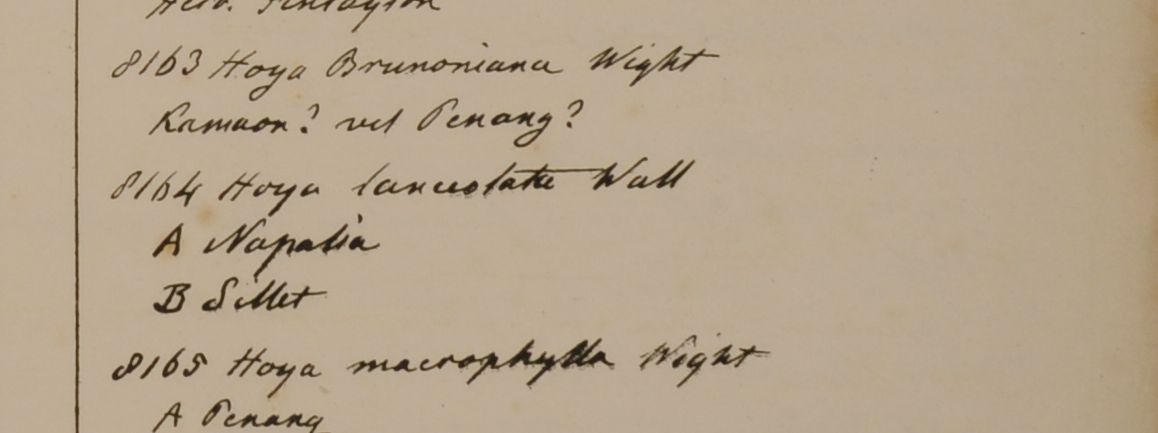 Herb. Finlayson
8163 Hoya Brunoniana Wight
Kamaon? vel Penang?
8164 Hoya lanceolata Wall
A Napalia
B Sillet
8165 Hoya macrophylla Wight
A Penang